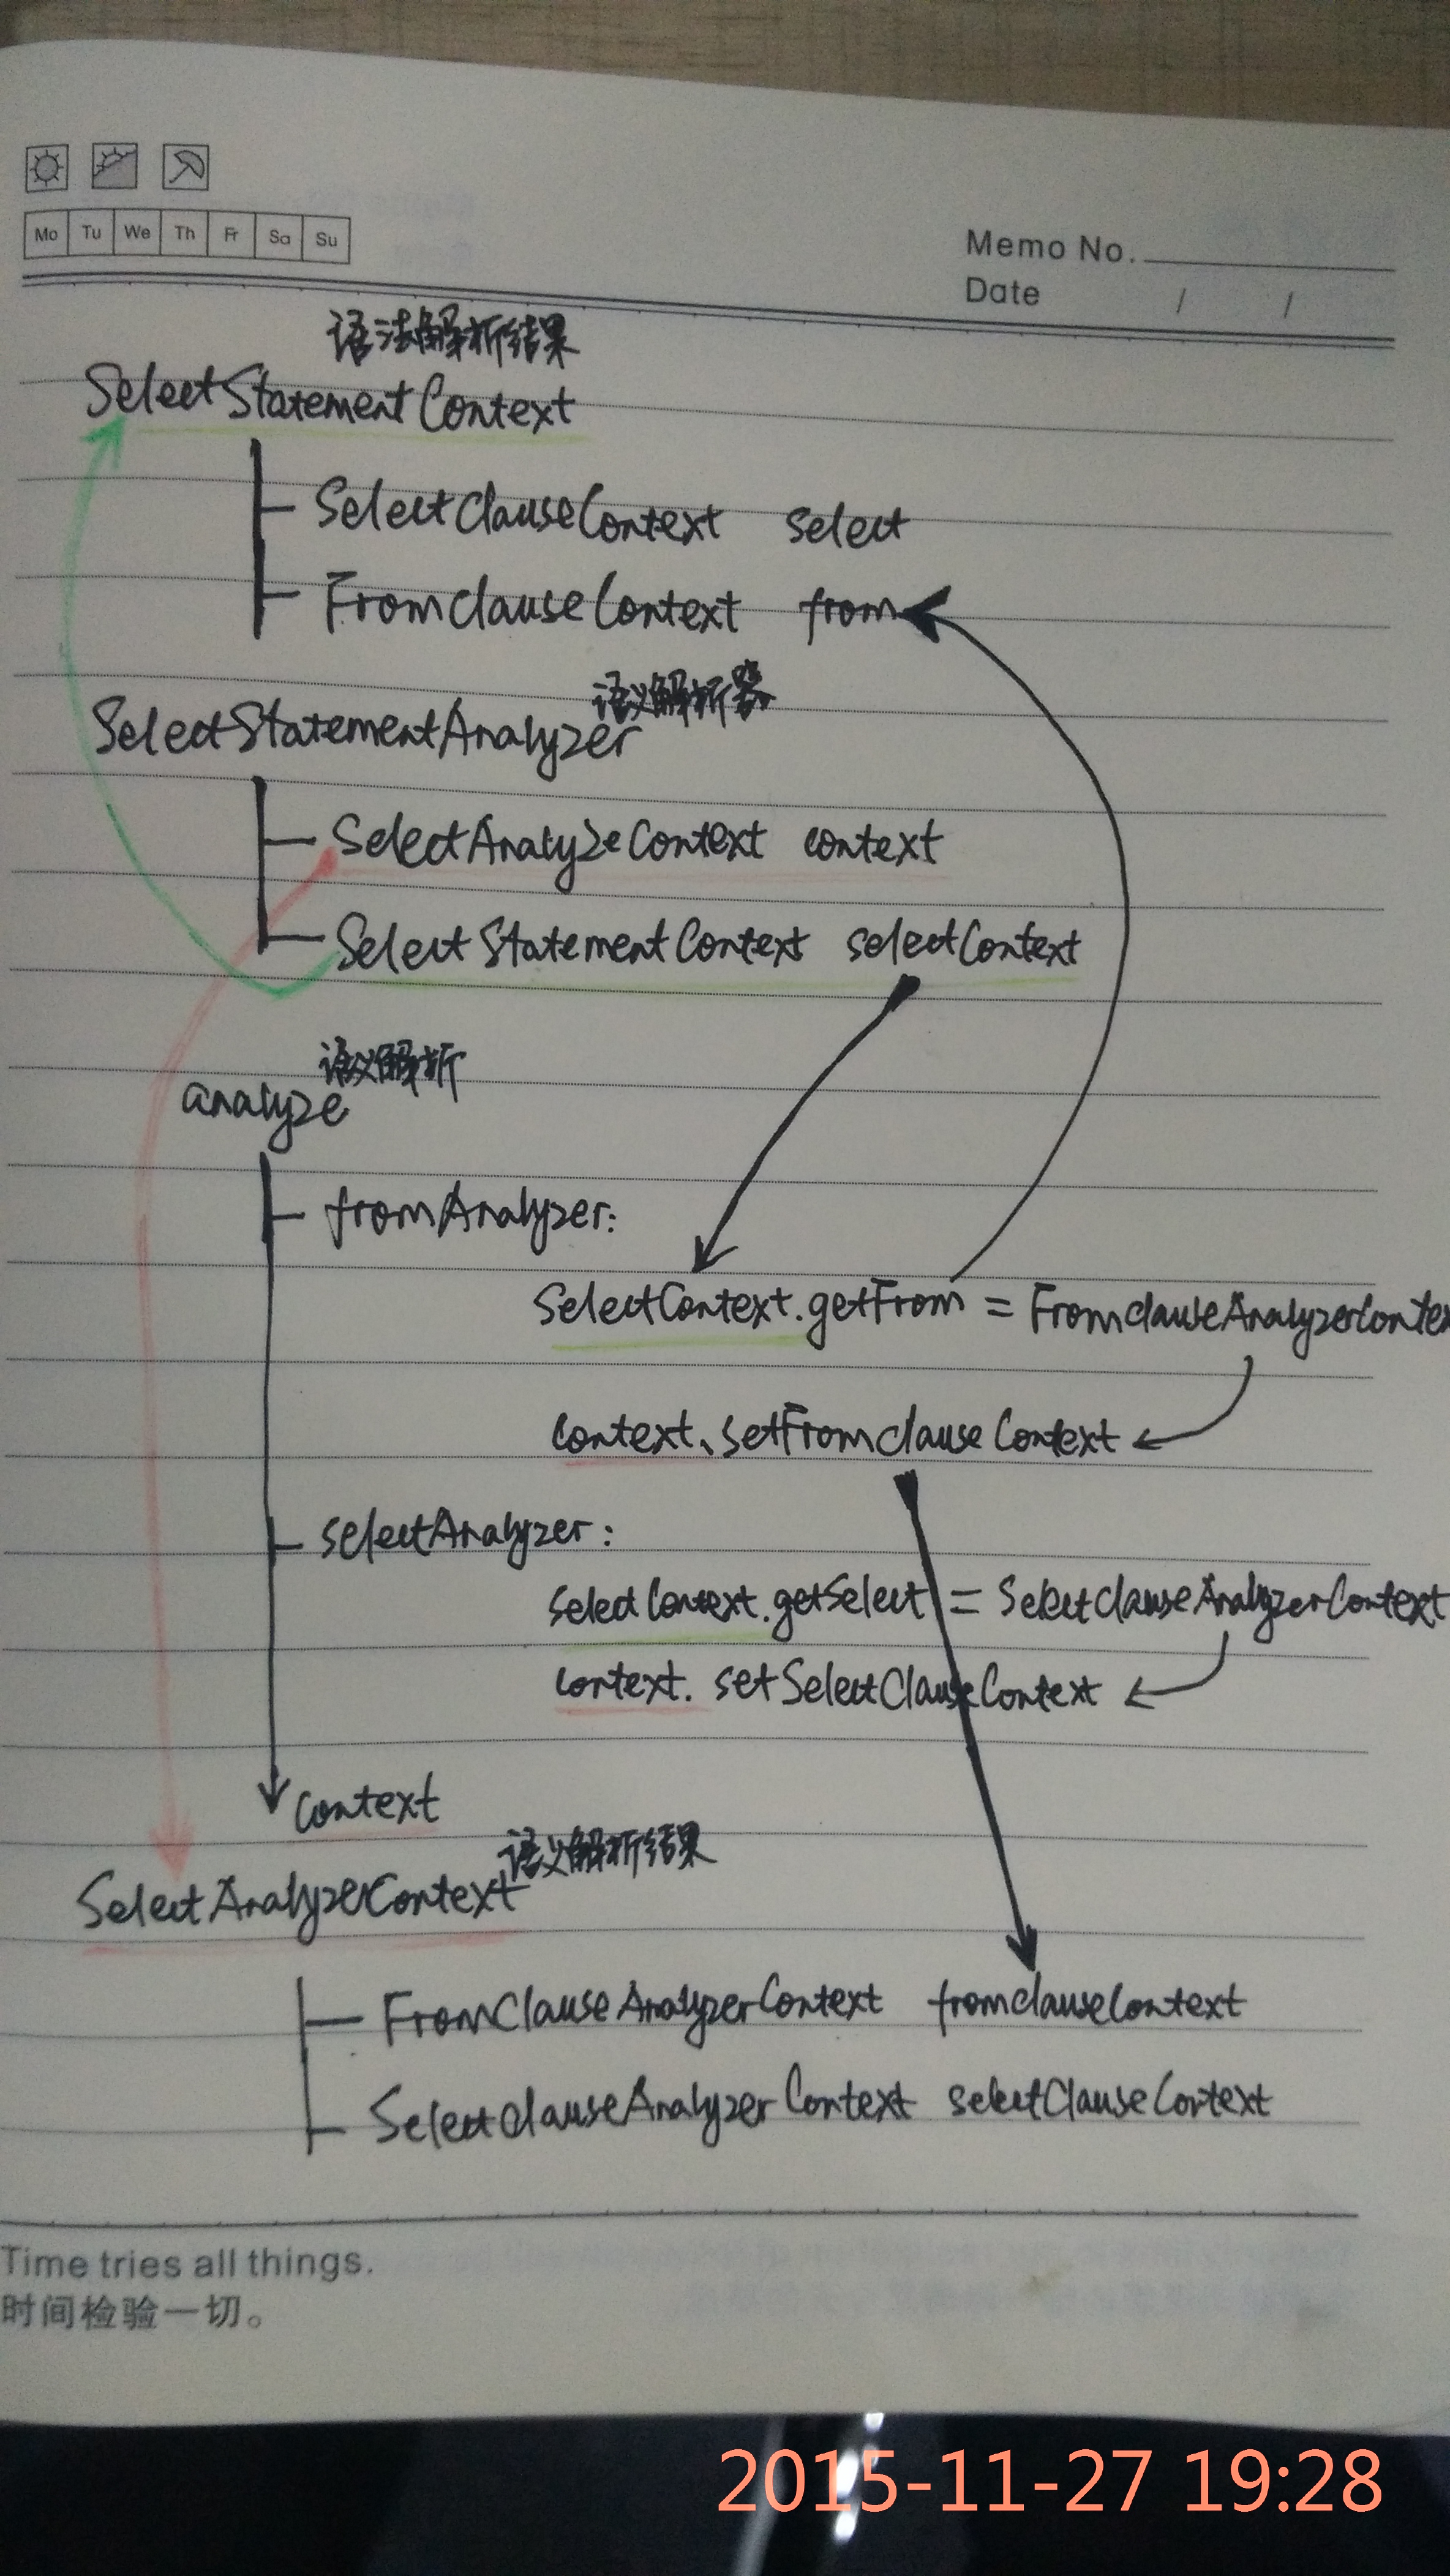 Mo Tu We Th Fr Sa Su
Memo No.
Date / /
语法解析结果
SelectStatementContext
SelectClauseContext select
FromClauseContext from
语义解析器
SelectStatementAnalyzer
SelectAnalyzeContext context
SelectStatementContext selectContext
语义解析
analyze
fromAnalyzer:
SelectContext.getFrom = FromClauseAnalyzerContex
context、setFromClauseContext
selectAnalyzer:
SelectContext.getSelect = SelectClauseAnalyzerContext
context. setSelectClauseContext
context
语义解析结果
SelectAnalyzerContext
FromClauseAnalyzerContext fromClauseContext
SelectClauseAnalyzerContext selectClauseContext
Time tries all things.
时间检验一切。
2015-11-27 19:28